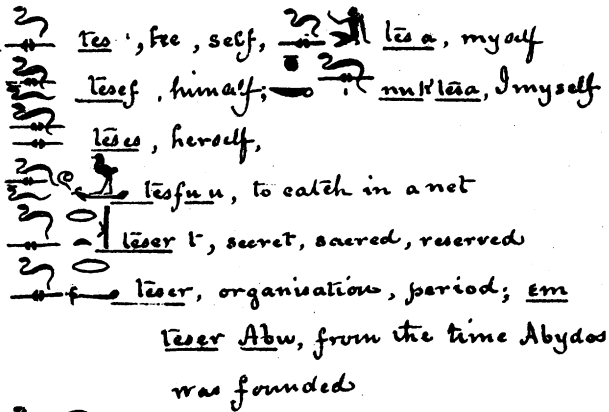 tes, he, self, tēs a, myself
tēsef, himself; nuk tēsa, I myself
tēses, herself,
tēsfuu, to catch in a net
tēser t, secret, sacred, reserved
tēser, organisation, period; em
tēser Abu, from the time Abydos
was founded